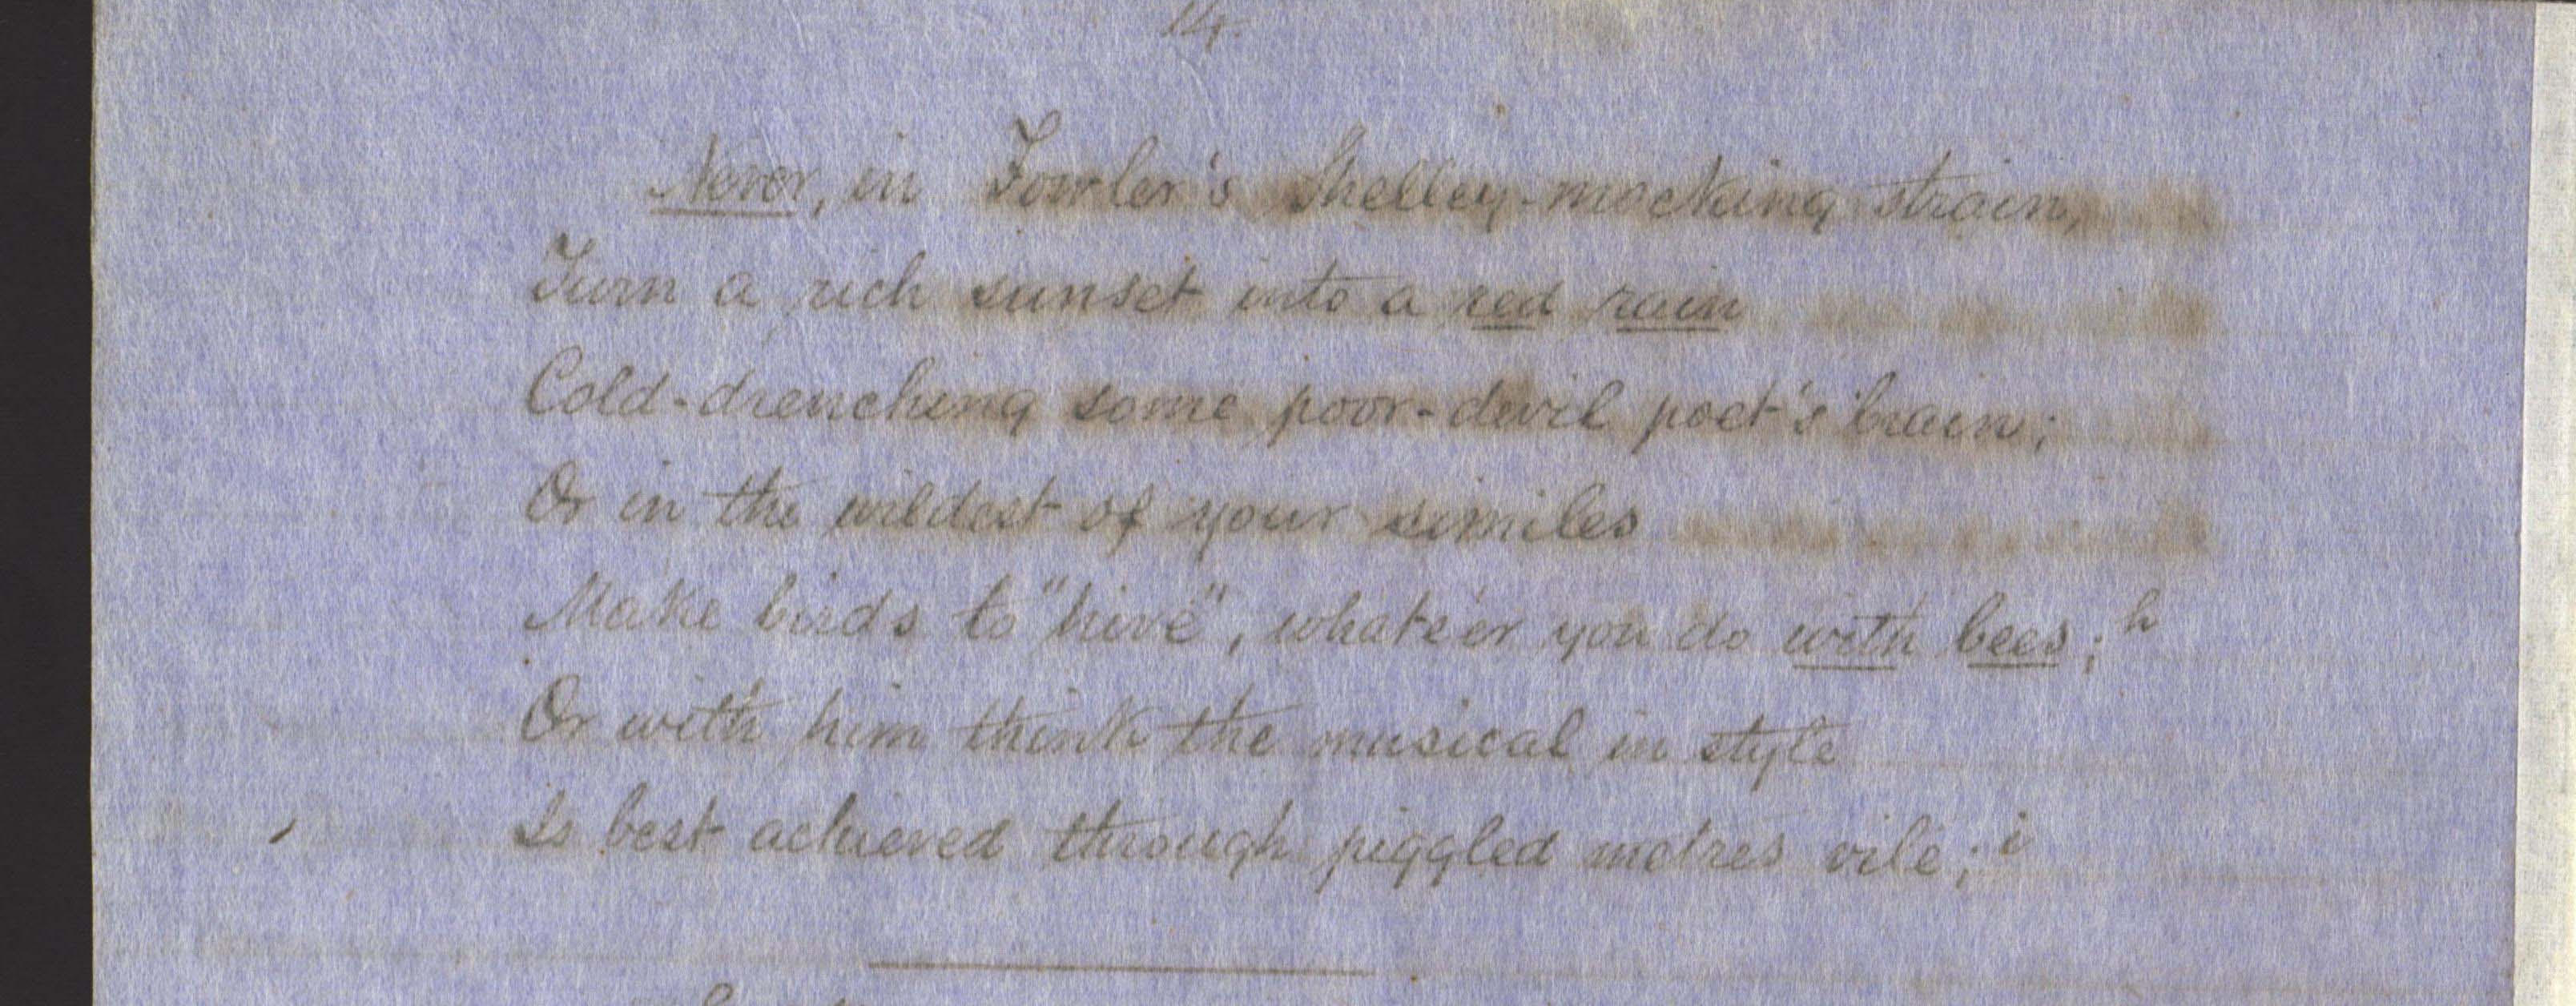 14.
Never, in Fowler's Shelley-mocking strain,
Turn a rich sunset into a red rain
Cold-drenching some poor-devil poet's brain;
Or in the wildest of your similes
Make birds to "hive", whate'er you do with bees; h
Or with him think the musical in style
Is best achieved through piggled metres vile; i